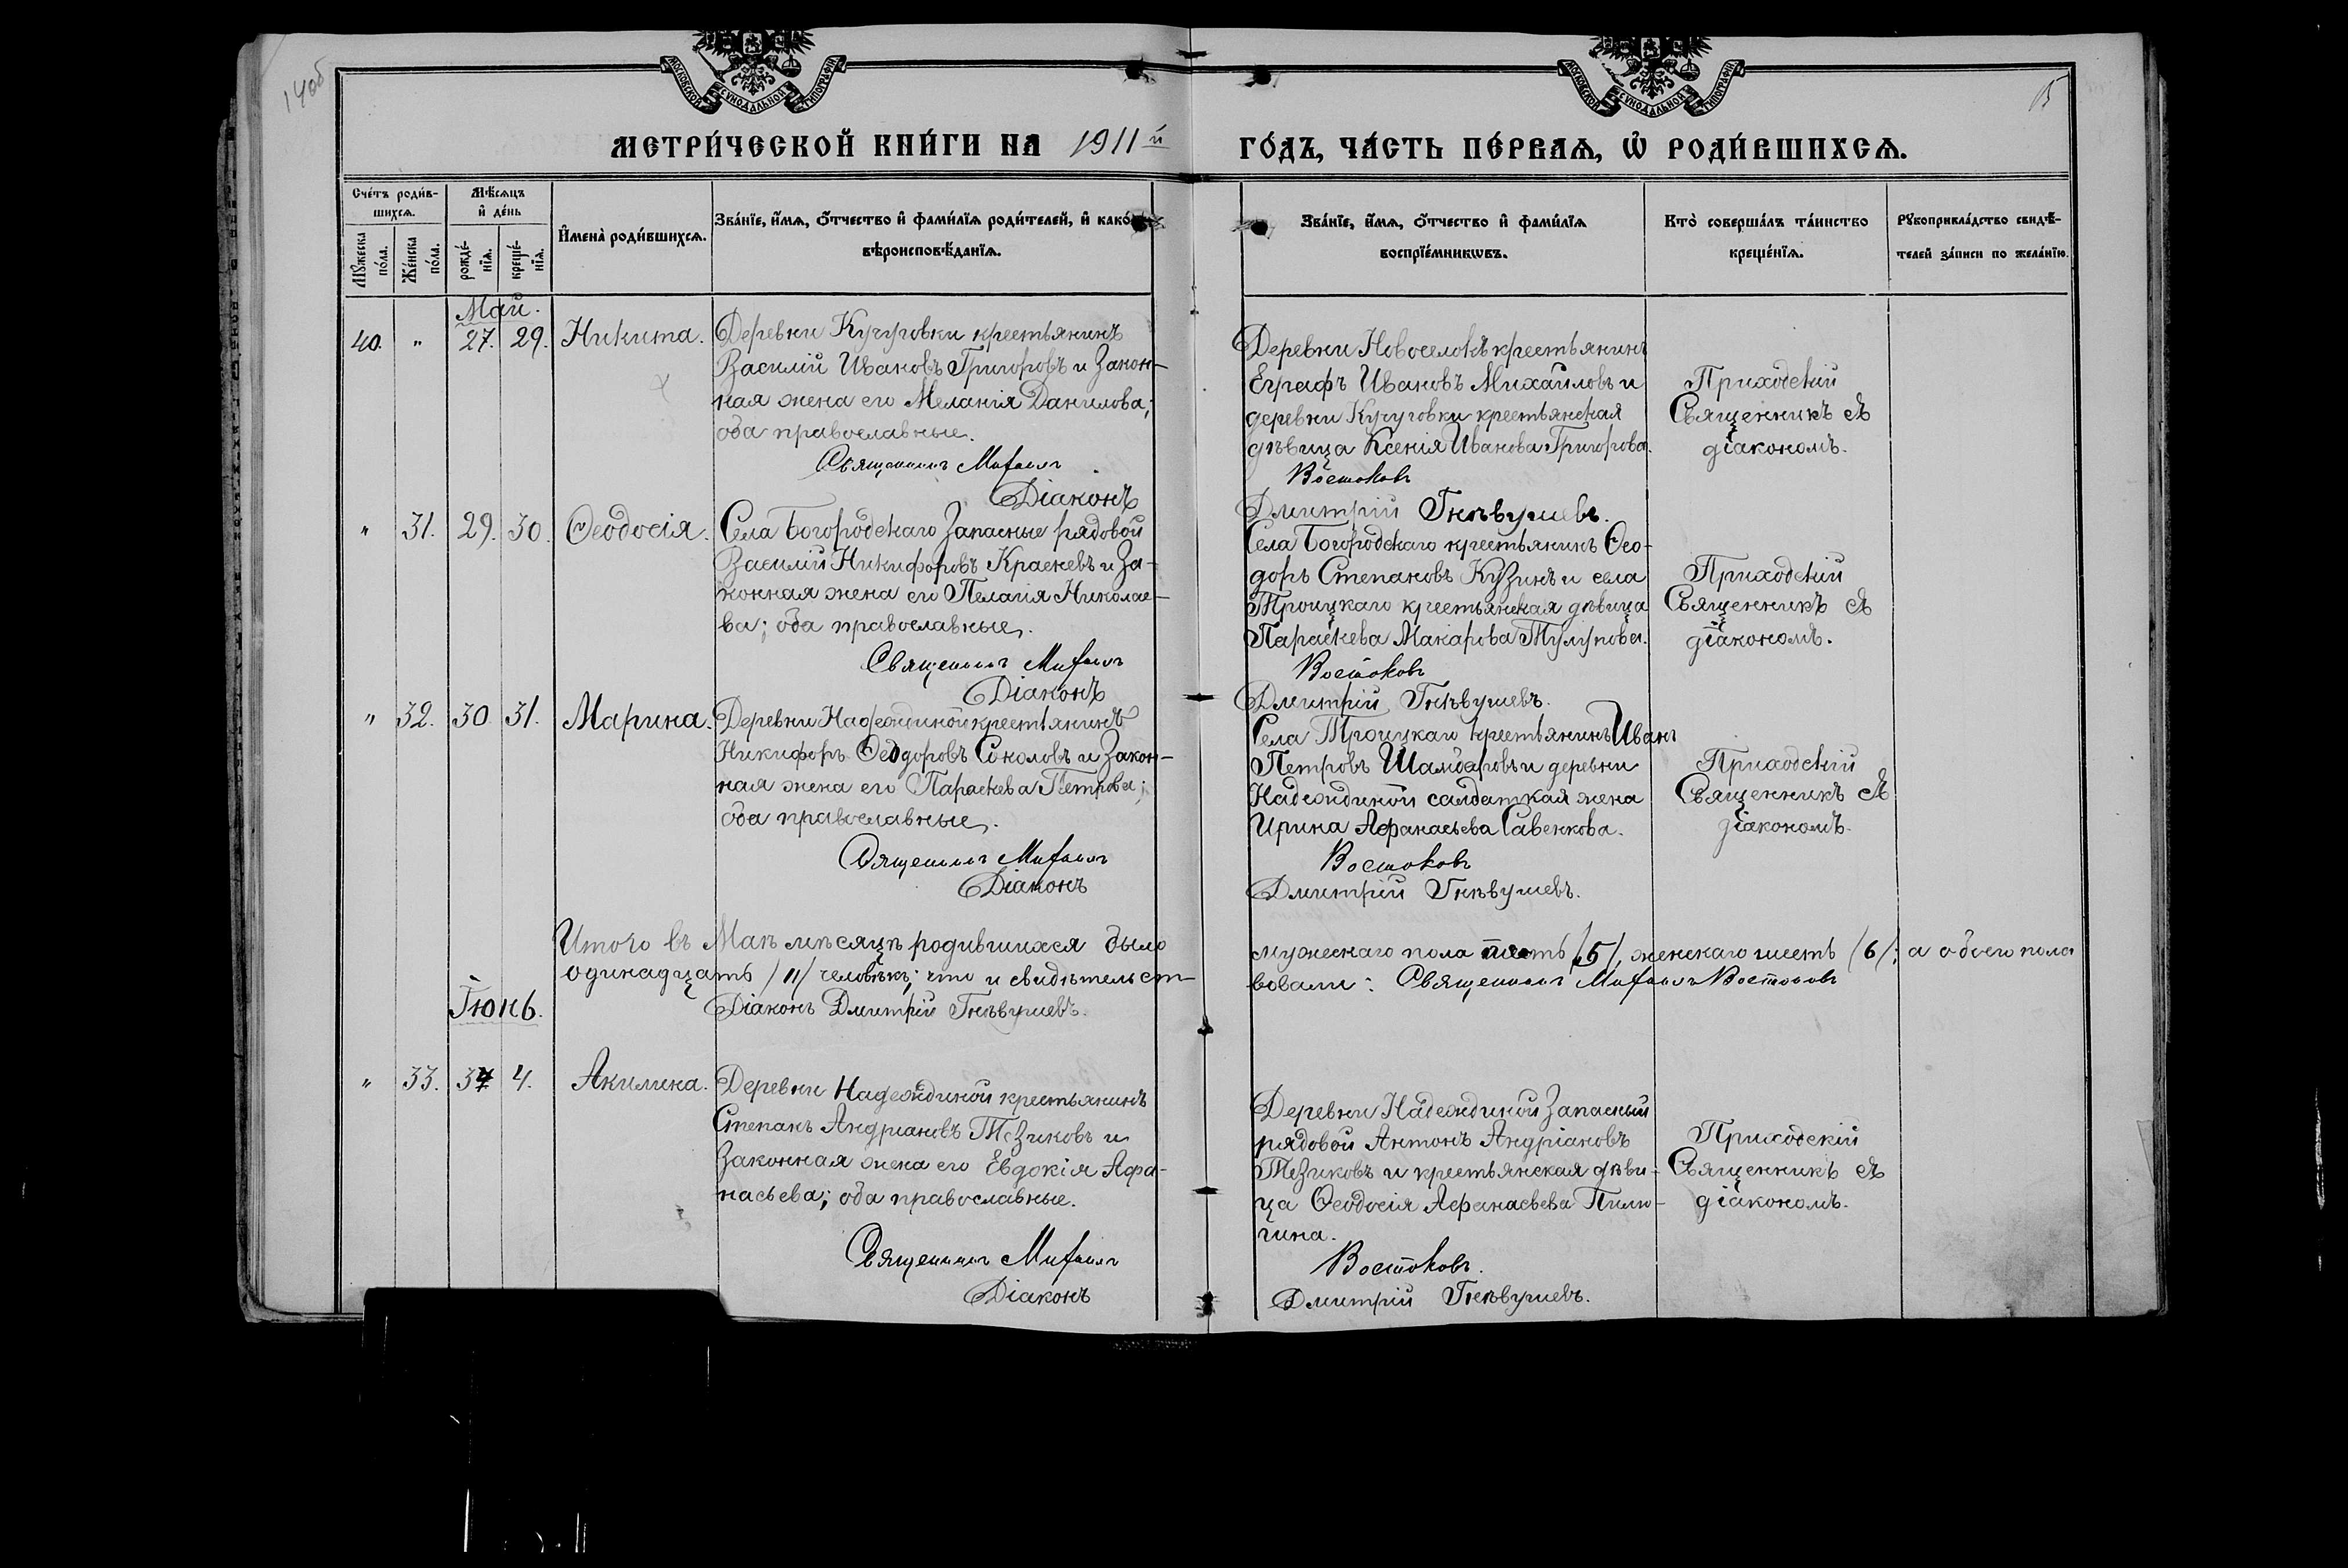 14об
15
МОСКОВСКОЙ СУНОДАЛЬНОЙ ТИПОГРАФІИ
МОСКОВСКОЙ СУНОДАЛЬНОЙ ТИПОГРАФІИ
МЕТРИ́ЧЕСКОЙ КНИ́ГИ НА 1911й ГО́ДЪ, ЧА́СТЬ ПЕ́РВАѦ, Ѽ РОДИ́ВШИХСѦ.
Сче́тъ роди́в-
шихсѧ.
Мѣ́сѧцъ
и҆ де́нь
Мꙋ́жеска
по́ла.
Же́нска
по́ла.
рожде́-
нїѧ.
креще́-
нїѧ.
И҆мена̀ роди́вшихсѧ.
Зва́нїе, и҆́мѧ, ѻ҆́тчество и҆ фами́лїѧ роди́телей, и҆ како́
вѣроисповѣ́данїѧ.
Зва́нїе, и҆́мѧ, ѻ҆́тчество и҆ фами́лїѧ
воспрїе́мникѡвъ.
Кто̀ соверша́лъ та́инство
креще́нїѧ.
Рꙋкоприкла́дство свидѣ́-
телей за́писи по жела́нїю.
Май.
40. " 27. 29. Никита.
Деревни Кучуговки крестьянинъ
Василій Ивановъ Григоровъ и закон-
ная жена его Меланія Данилова;
оба православные.
Священникъ Михаилъ
Діаконъ
Деревни Новоселокъ крестьянинъ
Евграфъ Ивановъ Михайловъ и
деревни Кучуговки крестьянская
дѣвица Ксенія Иванова Григорова.
Востоковъ
Дмитрій Гнѣвушевъ.
Приходскій
Священникъ съ
діакономъ.
" 31. 29. 30. Ѳеодосія.
Села Богородскаго запасные рядовой
Василій Никифоровъ Красневъ и за-
конная жена его Пелагія Николае-
ва; оба православные.
Священникъ Михаилъ
Діаконъ
Села Богородскаго крестьянинъ Ѳео-
доръ Степановъ Кузинъ и села
Троицкаго крестьянская дѣвица
Параскева Макарова Тулупова.
Востоковъ
Дмитрій Гнѣвушевъ.
Приходскій
Священникъ съ
діакономъ.
" 32. 30 31. Марина.
Деревни Надеждиной крестьянинъ
Никифоръ Ѳеодоровъ Соколовъ и закон-
ная жена его Параскева Петрова;
оба православные.
Священникъ Михаилъ
Діаконъ
Села Троицкаго крестьянинъ Иванъ
Петровъ Шамбаровъ и деревни
Надеждиной салдатская жена
Ирина Аѳанасьева Савенкова.
Востоковъ
Дмитрій Гнѣвушевъ.
Приходскій
Священникъ съ
діакономъ.
Итого въ Маѣ мѣсяцѣ родившихся было мужескаго пола пять /5/, женскаго шесть /6/; а обоего пола
одинадцать /11/ человѣкъ; что и свидѣтельст-
вовали: Священникъ Михаилъ Востоковъ
Діаконъ Дмитрій Гнѣвушевъ.
Іюнь.
" 33. 3 4. Акилина.
Деревни Надеждиной крестьянинъ
Степанъ Андріановъ Тезиковъ и
законная жена его Евдокія Аѳа-
насьева; оба православные.
Священникъ Михаилъ
Діаконъ
Деревни Надеждиной запасный
рядовой Антонъ Андріановъ
Тезиковъ и крестьянская дѣви-
ца Ѳеодосія Аѳанасьева Пилю-
гина.
Востоковъ.
Дмитрій Гнѣвушевъ.
Приходскій
Священникъ съ
діакономъ.